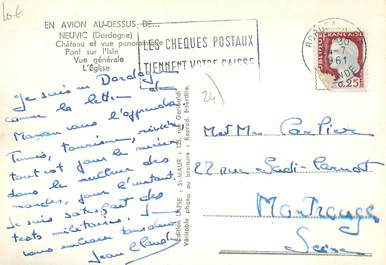 EN AVION AU-DESSUS DE...
NEUVIC (Dordogne)
Château et vue panoramique
Pont sur l'Isle
Vue générale
L'Eglise
LES CHEQUES POSTAUX
TIENNENT VOTRE CAISSE
1961
0,25F
24
Je suis en Dordogne
comme la lettre de
Maman vous l'apprendra
Tennis, tourisme, rivière
tout est pour le mieux
dans le meilleur des
mondes, pour l'instant.
Je suis satisfait des
tests militaires.
vous embrasse tous deux
Jean Claude
Edition LAPIE - St-MAUR - 125, rue Garibaldi
Véritable photo au bromure - Reprod. interdite
M et Mme Cartier
22 rue Sadi-Carnot
Montrouge
Seine